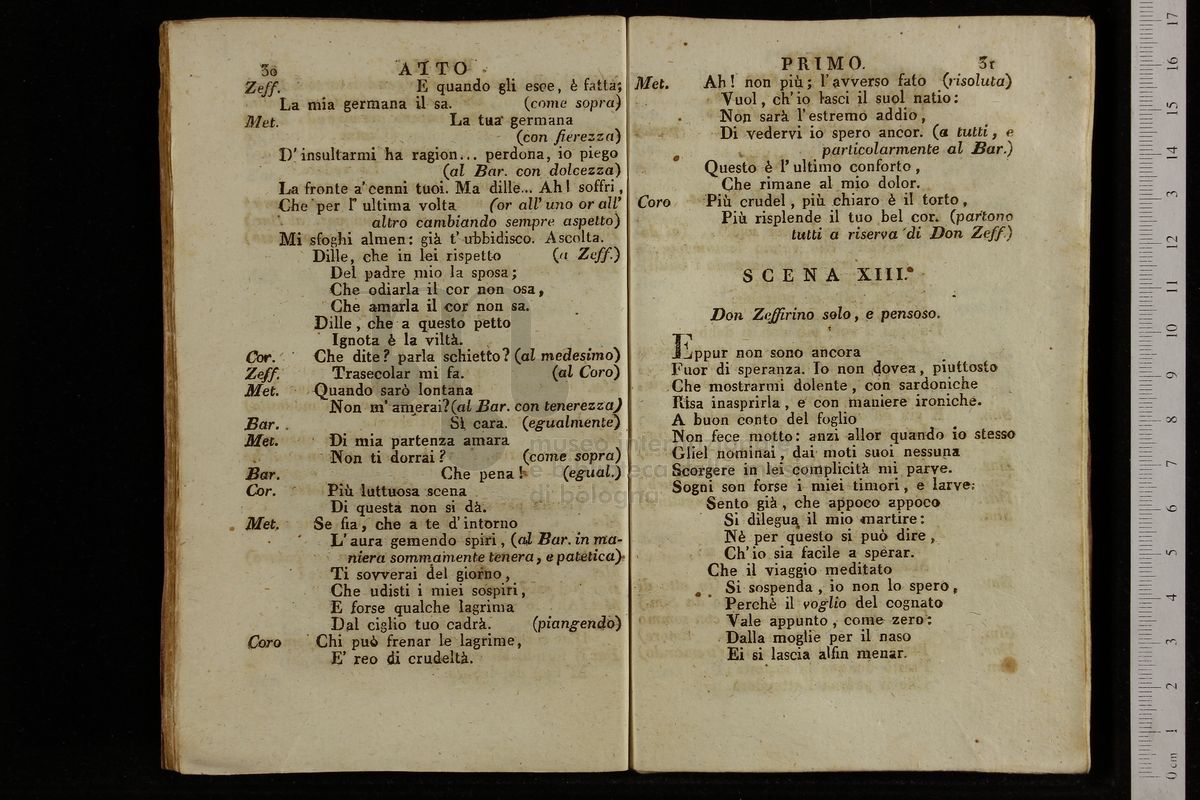 30 ATTO
Zeff. E quando gli esce, è fatta;
La mia germana il sa. (come sopra)
Met. La tua germana
(con fierezza)
D'insultarmi ha ragion... perdona, io piego
(al Bar. con dolcezza)
La fronte a'cenni tuoi. Ma dille... Ah! soffri,
Che per l'ultima volta (or all'uno or all'
altro cambiando sempre aspetto)
Mi sfoghi almen: già t'ubbidisco. Ascolta.
Dille, che in lei rispetto (a Zeff.)
Del padre mio la sposa;
Che odiarla il cor non osa,
Che amarla il cor non sa.
Dille, che a questo petto
Ignota è la viltà.
Cor. Che dite? parla schietto? (al medesimo)
Zeff. Trasecolar mi fa. (al Coro)
Met. Quando sarò lontana
Non m'amerai? (al Bar. con tenerezza)
Bar. Sì cara. (egualmente)
Met. Di mia partenza amara
Non ti dorrai? (come sopra)
Bar. Che pena! (egual.)
Cor. Più luttuosa scena
Di questa non si dà.
Met. Se fia, che a te d'intorno
L'aura gemendo spiri, (al Bar. in ma-
niera sommamente tenera, e patetica)
Ti sovverai del giorno,
Che udisti i miei sospiri,
E forse qualche lagrima
Dal ciglio tuo cadrà. (piangendo)
Coro Chi può frenar le lagrime,
E' reo di crudeltà.
PRIMO. 31
Met. Ah! non più; l'avverso fato (risoluta)
Vuol, ch'io lasci il suol natio:
Non sarà l'estremo addio,
Di vedervi io spero ancor. (a tutti, e
particolarmente al Bar.)
Questo è l'ultimo conforto,
Che rimane al mio dolor.
Coro Più crudel, più chiaro è il torto,
Più risplende il tuo bel cor. (partono
tutti a riserva di Don Zeff.)
SCENA XIII.
Don Zeffirino solo, e pensoso.
Eppur non sono ancora
Fuor di speranza. Io non dovea, piuttosto
Che mostrarmi dolente, con sardoniche
Risa inasprirla, e con maniere ironiche.
A buon conto del foglio
Non fece motto: anzi allor quando io stesso
Gliel nominai, dai moti suoi nessuna
Scorgere in lei complicità mi parve.
Sogni son forse i miei timori, e larve:
Sento già, che appoco appoco
Si dilegua il mio martire:
Nè per questo si può dire,
Ch'io sia facile a sperar.
Che il viaggio meditato
Si sospenda, io non lo spero,
Perchè il voglio del cognato
Vale appunto, come zero:
Dalla moglie per il naso
Ei si lascia alfin menar.
museo internazionale
e biblioteca
di bologna
0 cm 1 2 3 4 5 6 7 8 9 10 11 12 13 14 15 16 17